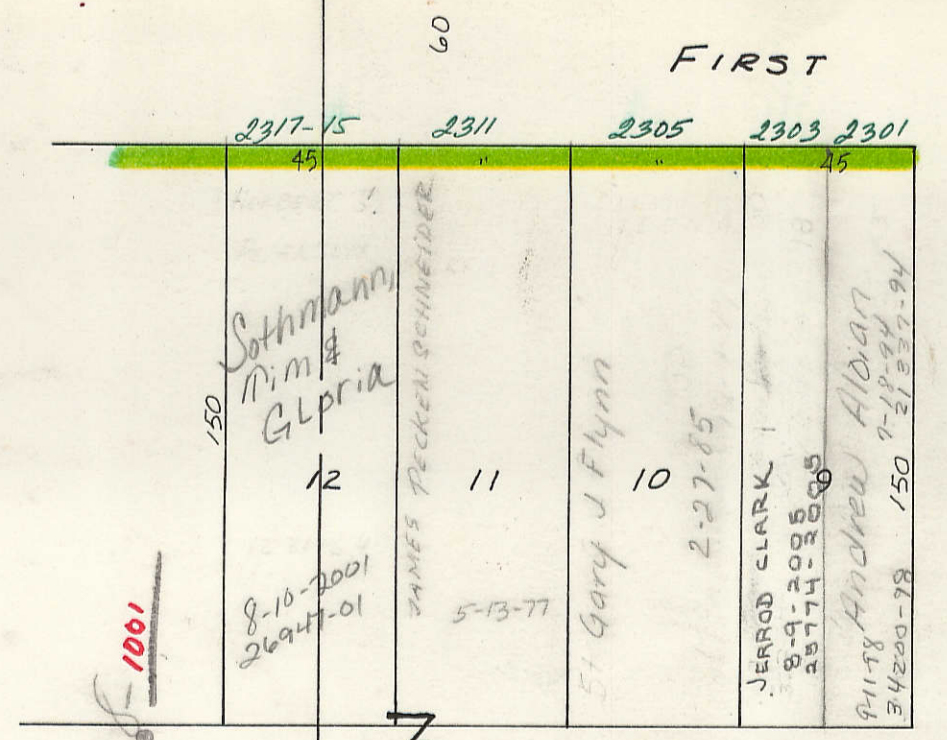 60
FIRST
2317-15 2311 2305 2303 2301
45 " " 45
150
Sothmann,
Tim &
GLoria
12
8-10-2001
26947-01
JAMES PECKENSCHNEIDER
11
5-13-77
Gary J Flynn
10
2-27-85
JERROD CLARK
8-9-2005
25774-2005
9
Andrew Aldian
9-11-98
7-18-94
34200-98
150
21337-94
1001
7